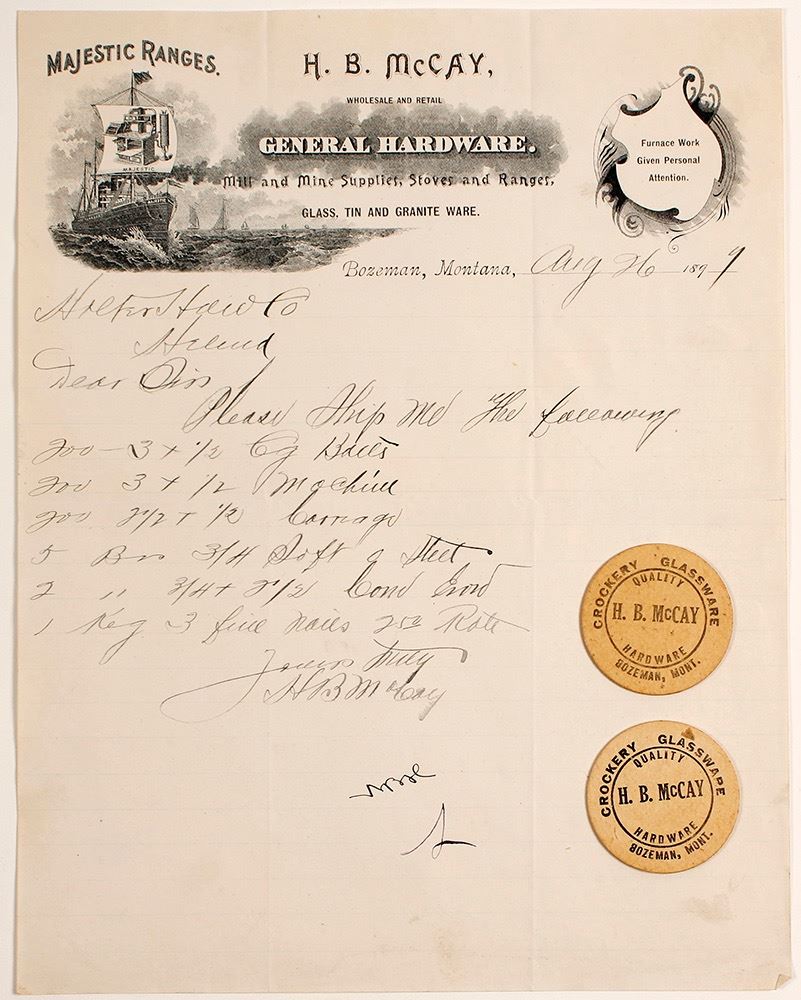 MAJESTIC RANGES.
MAJESTIC
H. B. McCAY,
WHOLESALE AND RETAIL
GENERAL HARDWARE.
Mill and Mine Supplies, Stoves and Ranges,
GLASS, TIN AND GRANITE WARE.
Furnace Work
Given Personal
Attention.
Bozeman, Montana, Aug 26 1899
Holter Hdw Co
Helena
Dear Sirs
Please Ship Me The following
200 - 3 x 1/2 Cg Bolts
200 3 x 1/2 Machine
200 2 1/2 x 1/2 Carriage
5 3/4 Soft Steel
2 " 3/4 x 2 1/2
1 Keg 3 fine nails Rate
Yours truly
H B McCay
CROCKERY GLASSWARE
QUALITY
H. B. McCAY
HARDWARE
BOZEMAN, MONT.
CROCKERY GLASSWARE
QUALITY
H. B. McCAY
HARDWARE
BOZEMAN, MONT.